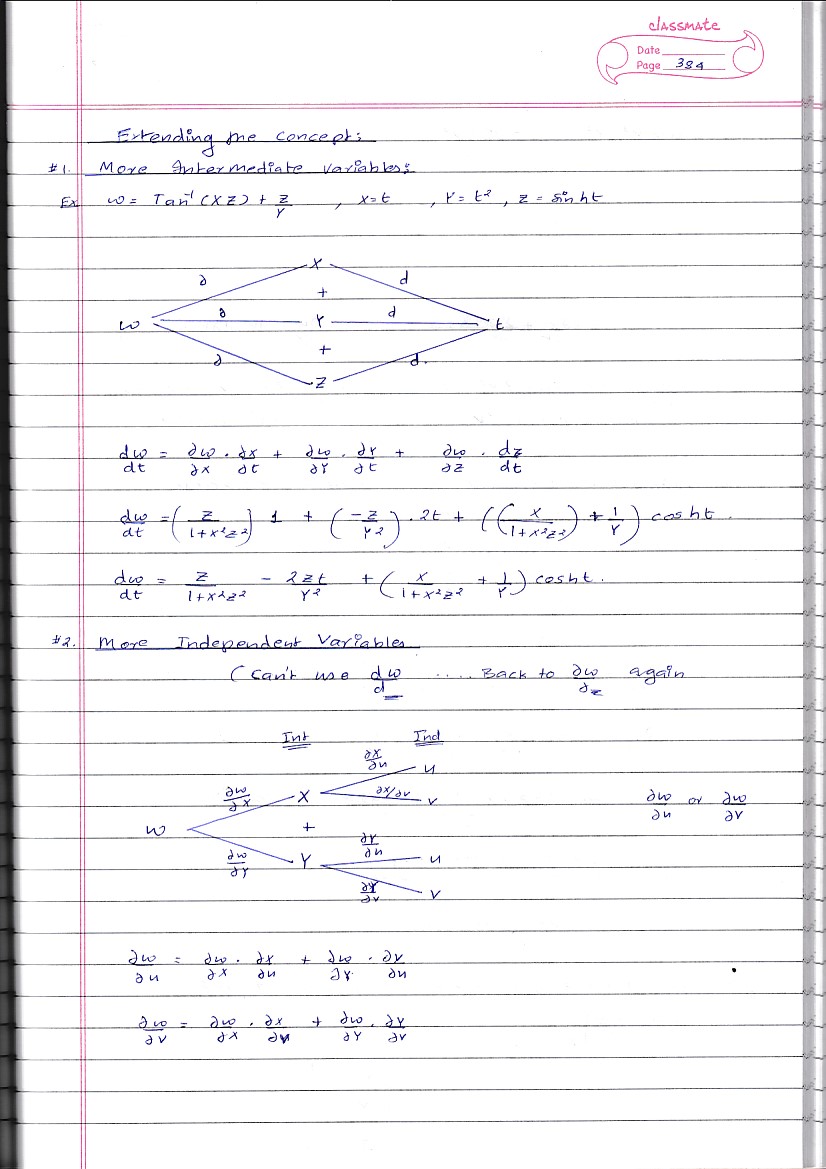 classmate
Date
Page 384
Extending the Concept:
#1. More Intermediate Variables:
Ex w = Tan⁻¹(XZ) + Z/Y , X=t , Y=t² , Z = sinht
X
∂ d
+
w ∂ Y d t
+
∂ d.
Z
dw/dt = ∂w/∂x · ∂x/∂t + ∂w/∂Y · ∂Y/∂t + ∂w/∂z · dz/dt
dw/dt = (z/1+x²z²) 1 + (-z/Y²) · 2t + ((x/1+x²z²) + 1/Y) cosht.
dw/dt = z/1+x²z² - 2zt/Y² + (x/1+x²z² + 1/Y) cosht.
#2. More Independent Variables
(Can't use dw/d_ .... Back to ∂w/∂z again
Int Ind
∂X/∂u u
∂w/∂X X ∂x/∂v v ∂w/∂u or ∂w/∂v
w +
∂Y/∂u
∂w/∂Y Y u
∂Y/∂v v
∂w/∂u = ∂w/∂X · ∂X/∂u + ∂w/∂Y · ∂Y/∂u
∂w/∂v = ∂w/∂X · ∂x/∂v + ∂w/∂Y · ∂Y/∂v